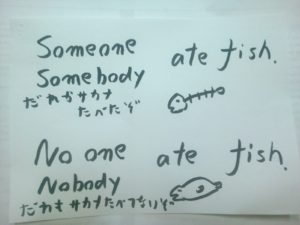 Someone ate fish.
Somebody
だれかサカナ
たべたぞ
No one ate fish.
Nobody
だれもサカナたべてないぞ